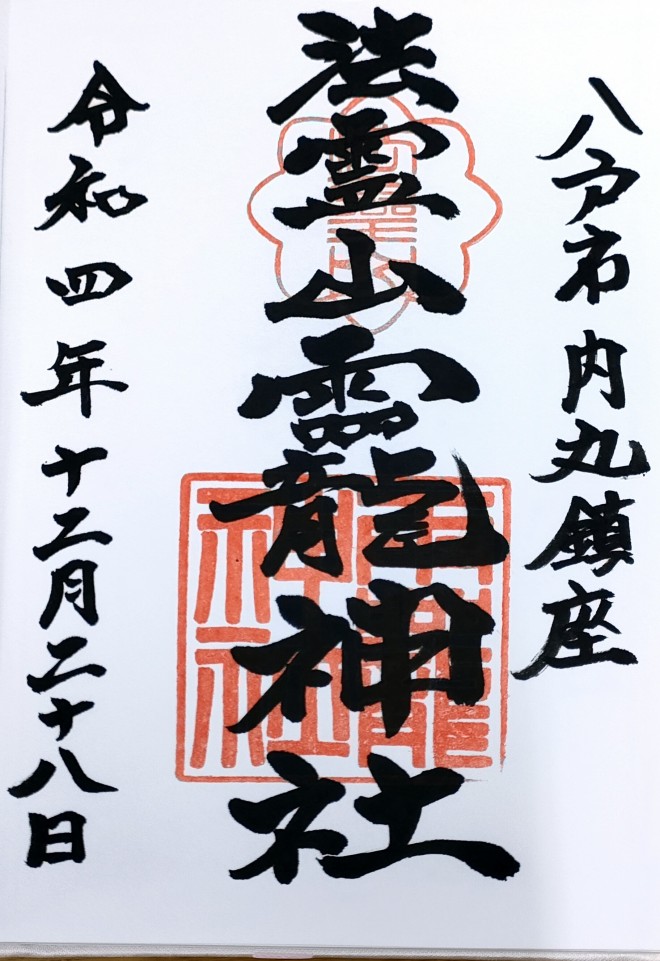 八戸市内丸鎮座
法霊山龗神社
龗神社
令和四年十二月二十八日